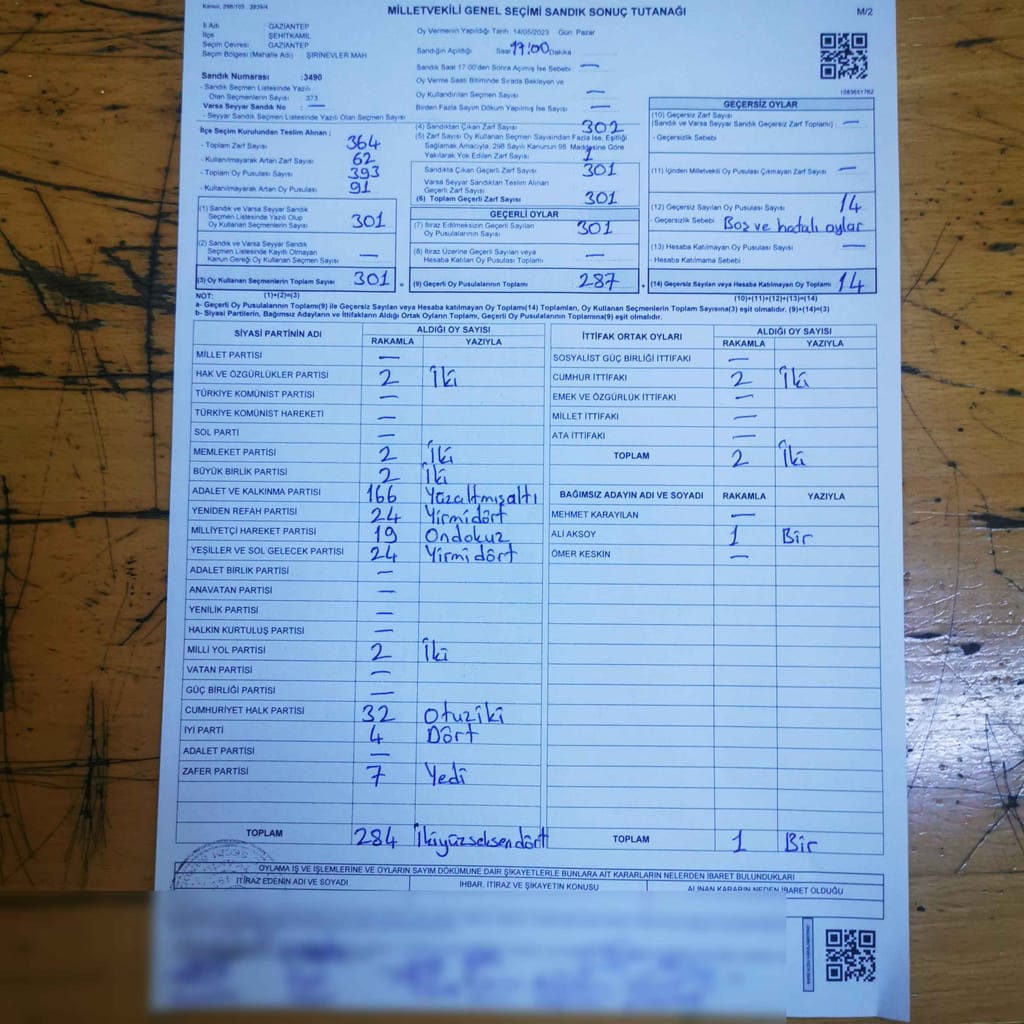 Kanun: 298/105 , 2839/4
MİLLETVEKİLİ GENEL SEÇİMİ SANDIK SONUÇ TUTANAĞI
M/2
İl Adı GAZİANTEP
İlçe ŞEHİTKAMİL
Seçim Çevresi GAZİANTEP
Seçim Bölgesi (Mahalle Adı) ŞİRİNEVLER MAH
Oy Vermenin Yapıldığı Tarih 14/05/2023 Gün Pazar
Sandığın Açıldığı Saat 17:00 Dakika
Sandık Saat 17:00'den Sonra Açılmış İse Sebebi —
Oy Verme Saati Bitiminde Sırada Bekleyen ve
Oy Kullandırılan Seçmen Sayısı —
Birden Fazla Sayım Döküm Yapılmış İse Sayısı —
Sandık Numarası :3490
- Sandık Seçmen Listesinde Yazılı
Olan Seçmenlerin Sayısı 373
Varsa Seyyar Sandık No : —
- Seyyar Sandık Seçmen Listesinde Yazılı Olan Seçmen Sayısı
İlçe Seçim Kurulundan Teslim Alınan ;
- Toplam Zarf Sayısı : 364
- Kullanılmayarak Artan Zarf Sayısı : 62
- Toplam Oy Pusulası Sayısı : 393
- Kullanılmayarak Artan Oy Pusulası : 91
(1) Sandık ve Varsa Seyyar Sandık
Seçmen Listesinde Yazılı Olup
Oy Kullanan Seçmenlerin Sayısı 301
(2) Sandık ve Varsa Seyyar Sandık
Seçmen Listesinde Kayıtlı Olmayan
Kanun Gereği Oy Kullanan Seçmen Sayısı —
(3) Oy Kullanan Seçmenlerin Toplam Sayısı 301
(4) Sandıktan Çıkan Zarf Sayısı 302
(5) Zarf Sayısı Oy Kullanan Seçmen Sayısından Fazla İse, Eşitliği
Sağlamak Amacıyla, 298 Sayılı Kanunun 98. Maddesine Göre
Yakılarak Yok Edilen Zarf Sayısı 1
Sandıkta Çıkan Geçerli Zarf Sayısı 301
Varsa Seyyar Sandıktan Teslim Alınan
Geçerli Zarf Sayısı
(6) Toplam Geçerli Zarf Sayısı 301
GEÇERLİ OYLAR
(7) İtiraz Edilmeksizin Geçerli Sayılan
Oy Pusulalarının Sayısı 301
(8) İtiraz Üzerine Geçerli Sayılan veya
Hesaba Katılan Oy Pusulası Toplamı —
(9) Geçerli Oy Pusulalarının Toplamı 287
GEÇERSİZ OYLAR
(10) Geçersiz Zarf Sayısı
(Sandık ve Varsa Seyyar Sandık Geçersiz Zarf Toplamı) : —
- Geçersizlik Sebebi
(11) İçinden Milletvekili Oy Pusulası Çıkmayan Zarf Sayısı —
(12) Geçersiz Sayılan Oy Pusulası Sayısı 14
- Geçersizlik Sebebi Boş ve hatalı oylar
(13) Hesaba Katılmayan Oy Pusulası Sayısı —
- Hesaba Katılmama Sebebi :
(14) Geçersiz Sayılan veya Hesaba Katılmayan Oy Toplamı 14
NOT: (1)+(2)=(3) (10)+(11)+(12)+(13)=(14)
a- Geçerli Oy Pusulalarının Toplamı(9) ile Geçersiz Sayılan veya Hesaba katılmayan Oy Toplamı(14) Toplamları, Oy Kullanan Seçmenlerin Toplam Sayısına(3) eşit olmalıdır. (9)+(14)=(3)
b- Siyasi Partilerin, Bağımsız Adayların ve İttifakların Aldığı Ortak Oyların Toplamı, Geçerli Oy Pusulalarının Toplamına(9) eşit olmalıdır.
SİYASİ PARTİNİN ADI ALDIĞI OY SAYISI
RAKAMLA YAZIYLA
MİLLET PARTİSİ —
HAK VE ÖZGÜRLÜKLER PARTİSİ 2 İki
TÜRKİYE KOMÜNİST PARTİSİ —
TÜRKİYE KOMÜNİST HAREKETİ —
SOL PARTİ —
MEMLEKET PARTİSİ 2 İki
BÜYÜK BİRLİK PARTİSİ 2 İki
ADALET VE KALKINMA PARTİSİ 166 Yüzaltmışaltı
YENİDEN REFAH PARTİSİ 24 Yirmidört
MİLLİYETÇİ HAREKET PARTİSİ 19 Ondokuz
YEŞİLLER VE SOL GELECEK PARTİSİ 24 Yirmidört
ADALET BİRLİK PARTİSİ —
ANAVATAN PARTİSİ —
YENİLİK PARTİSİ —
HALKIN KURTULUŞ PARTİSİ —
MİLLİ YOL PARTİSİ 2 İki
VATAN PARTİSİ —
GÜÇ BİRLİĞİ PARTİSİ —
CUMHURİYET HALK PARTİSİ 32 Otuziki
İYİ PARTİ 4 Dört
ADALET PARTİSİ —
ZAFER PARTİSİ 7 Yedi
TOPLAM 284 İkiyüzseksendört
İTTİFAK ORTAK OYLARI ALDIĞI OY SAYISI
RAKAMLA YAZIYLA
SOSYALİST GÜÇ BİRLİĞİ İTTİFAKI —
CUMHUR İTTİFAKI 2 İki
EMEK VE ÖZGÜRLÜK İTTİFAKI —
MİLLET İTTİFAKI —
ATA İTTİFAKI —
TOPLAM 2 İki
BAĞIMSIZ ADAYIN ADI VE SOYADI RAKAMLA YAZIYLA
MEHMET KARAYILAN —
ALİ AKSOY 1 Bir
ÖMER KESKİN —
TOPLAM 1 Bir
OYLAMA İŞ VE İŞLEMLERİNE VE OYLARIN SAYIM DÖKÜMÜNE DAİR ŞİKAYETLERLE BUNLARA AİT KARARLARIN NELERDEN İBARET BULUNDUKLARI
İTİRAZ EDENİN ADI VE SOYADI İHBAR, İTİRAZ VE ŞİKAYETİN KONUSU ALINAN KARARIN NEDEN İBARET OLDUĞU